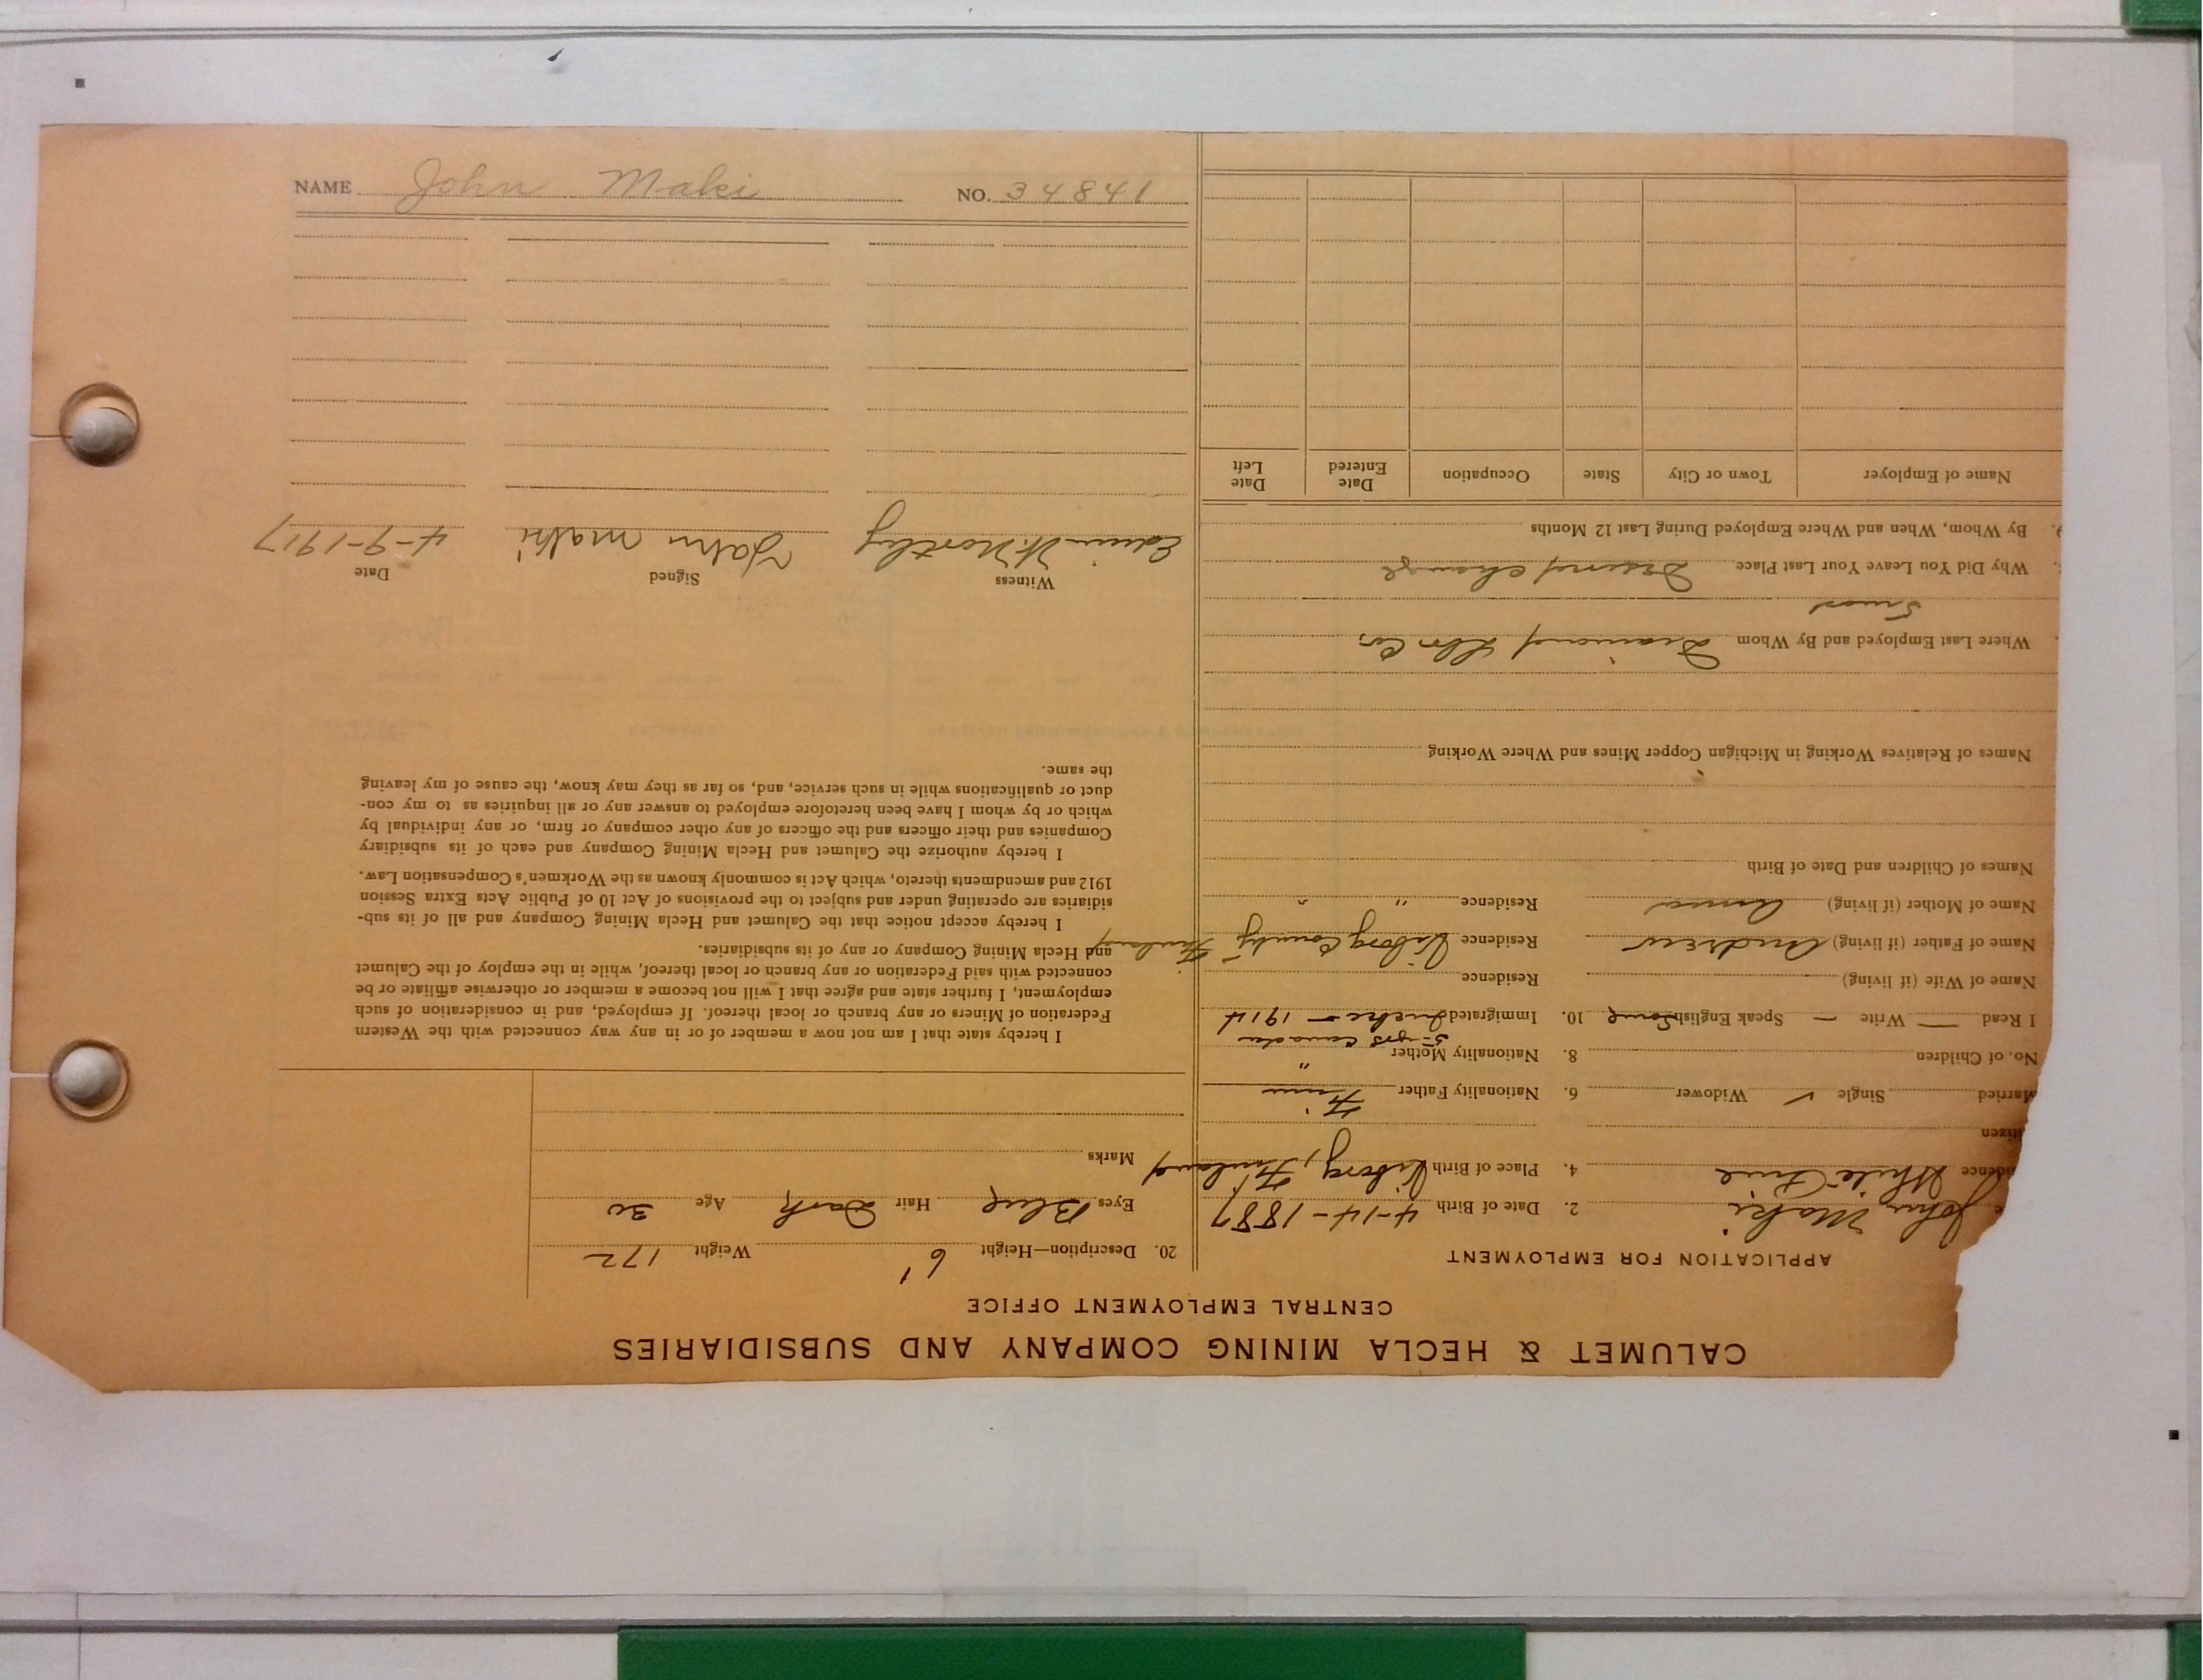 CALUMET & HECLA MINING COMPANY AND SUBSIDIARIES
CENTRAL EMPLOYMENT OFFICE
APPLICATION FOR EMPLOYMENT
e John Maki 2. Date of Birth 4-14-1887
idence White Pine 4. Place of Birth Viborg, Finland
itizen
Married Single ✓ Widower 6. Nationality Father Finn
No. of Children 8. Nationality Mother "
5 yrs Canada
I Read — Write — Speak English Some 10. Immigrated 1914
Name of Wife (if living) Residence
Name of Father (if living) Andrew Residence Viborg County Finland
Name of Mother (if living) Anna Residence " "
Names of Children and Date of Birth
Names of Relatives Working in Michigan Copper Mines and Where Working
Where Last Employed and By Whom Diamond Lbr. Co.
Why Did You Leave Your Last Place change
9. By Whom, When and Where Employed During Last 12 Months
Name of Employer Town or City State Occupation Date Entered Date Left
20. Description—Height 6' Weight 172
Eyes Blue Hair Dark Age 30
Marks
I hereby state that I am not now a member of or in any way connected with the Western
Federation of Miners or any branch or local thereof. If employed, and in consideration of such
employment, I further state and agree that I will not become a member or otherwise affiliate or be
connected with said Federation or any branch or local thereof, while in the employ of the Calumet
and Hecla Mining Company or any of its subsidiaries.
I hereby accept notice that the Calumet and Hecla Mining Company and all of its sub-
sidiaries are operating under and subject to the provisions of Act 10 of Public Acts Extra Session
1912 and amendments thereto, which Act is commonly known as the Workmen's Compensation Law.
I hereby authorize the Calumet and Hecla Mining Company and each of its subsidiary
Companies and their officers and the officers of any other company or firm, or any individual by
which or by whom I have been heretofore employed to answer any or all inquiries as to my con-
duct or qualifications while in such service, and, so far as they may know, the cause of my leaving
the same.
Witness Signed Date
Edwin W. Northey John maki 4-9-1917
NAME John Maki NO. 34841